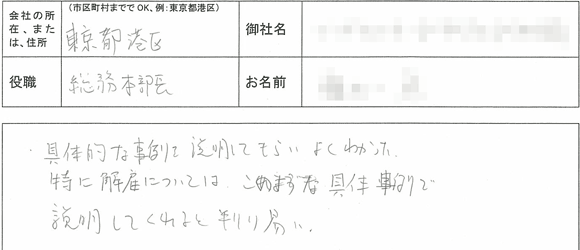 会社の所在、または、住所
(市区町村まででOK、例:東京都港区)
東京都港区
御社名
役職
総務本部長
お名前
・具体的な事例で説明してもらいよくわかった.
特に解雇については、このような具体事例で
説明してくれると判り易い.